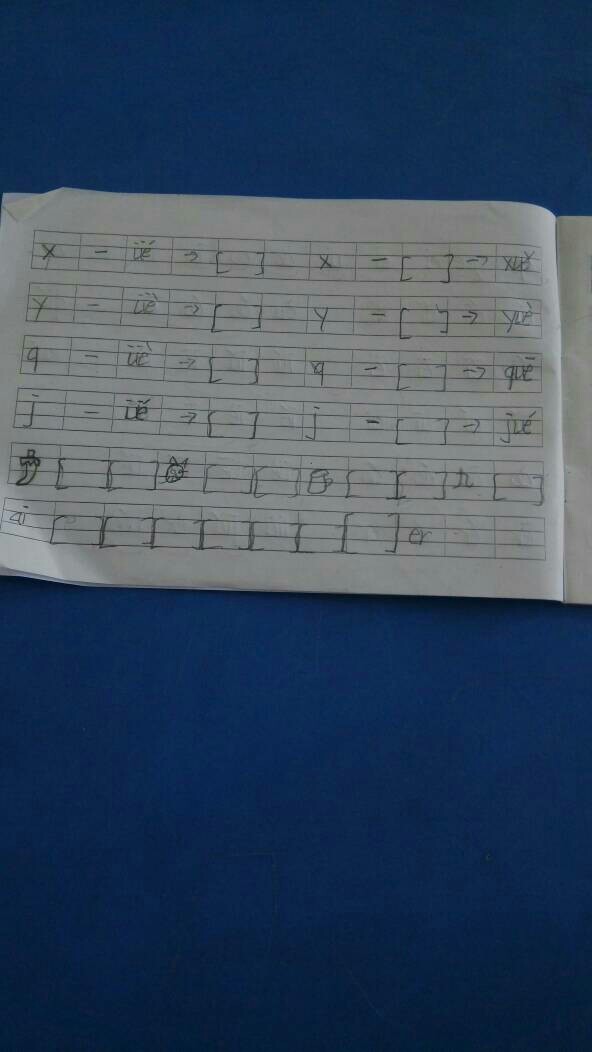 x - üé → [ ] x - [ ] → xuě
y - üè → [ ] y - [ ] → yuè
q - üè → [ ] q - [ ] → quē
j - üě → [ ] j - [ ] → jué
[ ] [ ] [ ] [ ] [ ] [ ] 九 [ ]
ai [ ] [ ] [ ] [ ] [ ] [ ] [ ] er